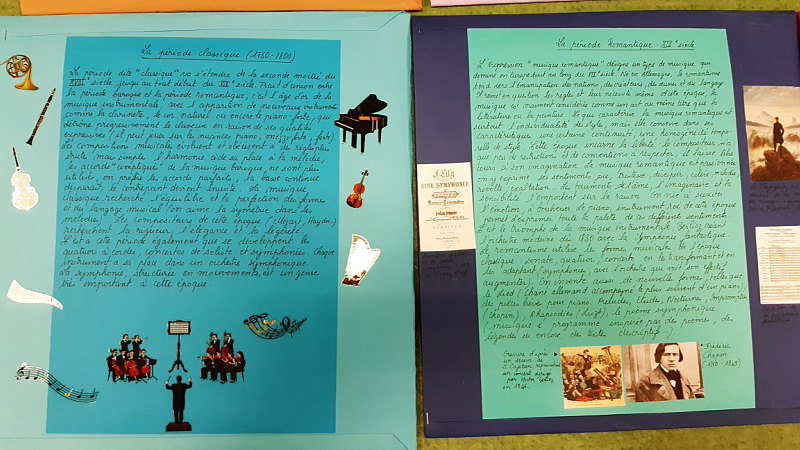 La période classique (1750-1800)
La période dite "classique" va s'étendre de la seconde moitié du
XVIIIe siècle jusqu'au tout début du XIXe siècle. Trait d'union entre
la période baroque et la période romantique, c'est l'âge d'or de la
musique instrumentale, avec l'apparition de nouveaux instruments
comme la clarinette, le cor naturel ou encore le piano-forte, qui
détrône progressivement le clavecin en raison de ses qualités
expressives (il peut jouer sur les nuances, piano, mezzo-forte, forte).
Les compositions musicales évoluent et obéissent à des règles plus
strictes mais simples : l'harmonie cède sa place à la mélodie,
les accords "compliqués" de la musique baroque ne sont plus
utilisés, on préfère les accords parfaits, la basse continue
disparaît, le contrepoint devient inusité. La musique
classique recherche l'équilibre et la perfection des formes
et du langage musical (on aime la symétrie dans les
mélodies). Les compositeurs de cette époque (Mozart, Haydn..)
recherchent la rigueur, l'élégance et la légèreté.
C'est à cette période également que se développent les
quatuors à cordes, concertos de soliste et symphonies. Chaque
instrument a sa place dans un orchestre symphonique.
La symphonie, structurée en mouvements, est un genre
très important à cette époque.
La période Romantique - XIXe siècle
L'expression "musique romantique" désigne un type de musique qui
domine en Europe tout au long du XIXe siècle. Né en Allemagne, le romantisme
tend vers l'émancipation des nations, des créateurs, des œuvres et du langage.
musique est maintenant considérée comme un art au même titre que la
littérature ou la peinture. Ce qui caractérise la musique romantique est
surtout l'individualité du style, mais elle conserve dans ses
caractéristiques, une certaine continuité, une homogénéité temporelle
de style. Cette époque incarne la liberté : le compositeur n'a
que peu de restrictions et de conventions à respecter, il laisse libre
cours à son imagination. La musique romantique est passionnée,
on y exprime ses sentiments : joie, tristesse, désespoir, colère, mélancolie,
révolte, exaltation... les tourments de l'âme, l'imaginaire et la
sensibilité l'emportent sur la raison. On vise à susciter
l'émotion, l'orchestre et piano, instrument roi de cette époque
pour exprimer toute la palette de ces différents sentiments.
C'est le triomphe de la musique instrumentale. Berlioz créant
l'orchestre moderne dès 1830 avec sa Symphonie fantastique.
Le romantisme utilise les formes musicales de l'époque
classique : sonate, quatuor, concerto en les transformant et en
les adaptant (symphonies, avec l'orchestre qui voit son effectif
augmenter). On invente aussi de nouvelles formes, telles que
le Lied (chant allemand accompagné le plus souvent d'un piano),
des pièces brèves pour piano : Préludes, Études, Nocturnes, Impromptus
(Chopin), Rhapsodies (Liszt), le poème symphonique
(musique à programme inspirée par des poèmes, des
légendes ou encore des textes descriptifs...)
Gravure d'après
un dessin de
J. Cajetan, représentant
un concert dirigé
par Hector Berlioz
en 1846.
Frédéric
Chopin
(1810-1849)